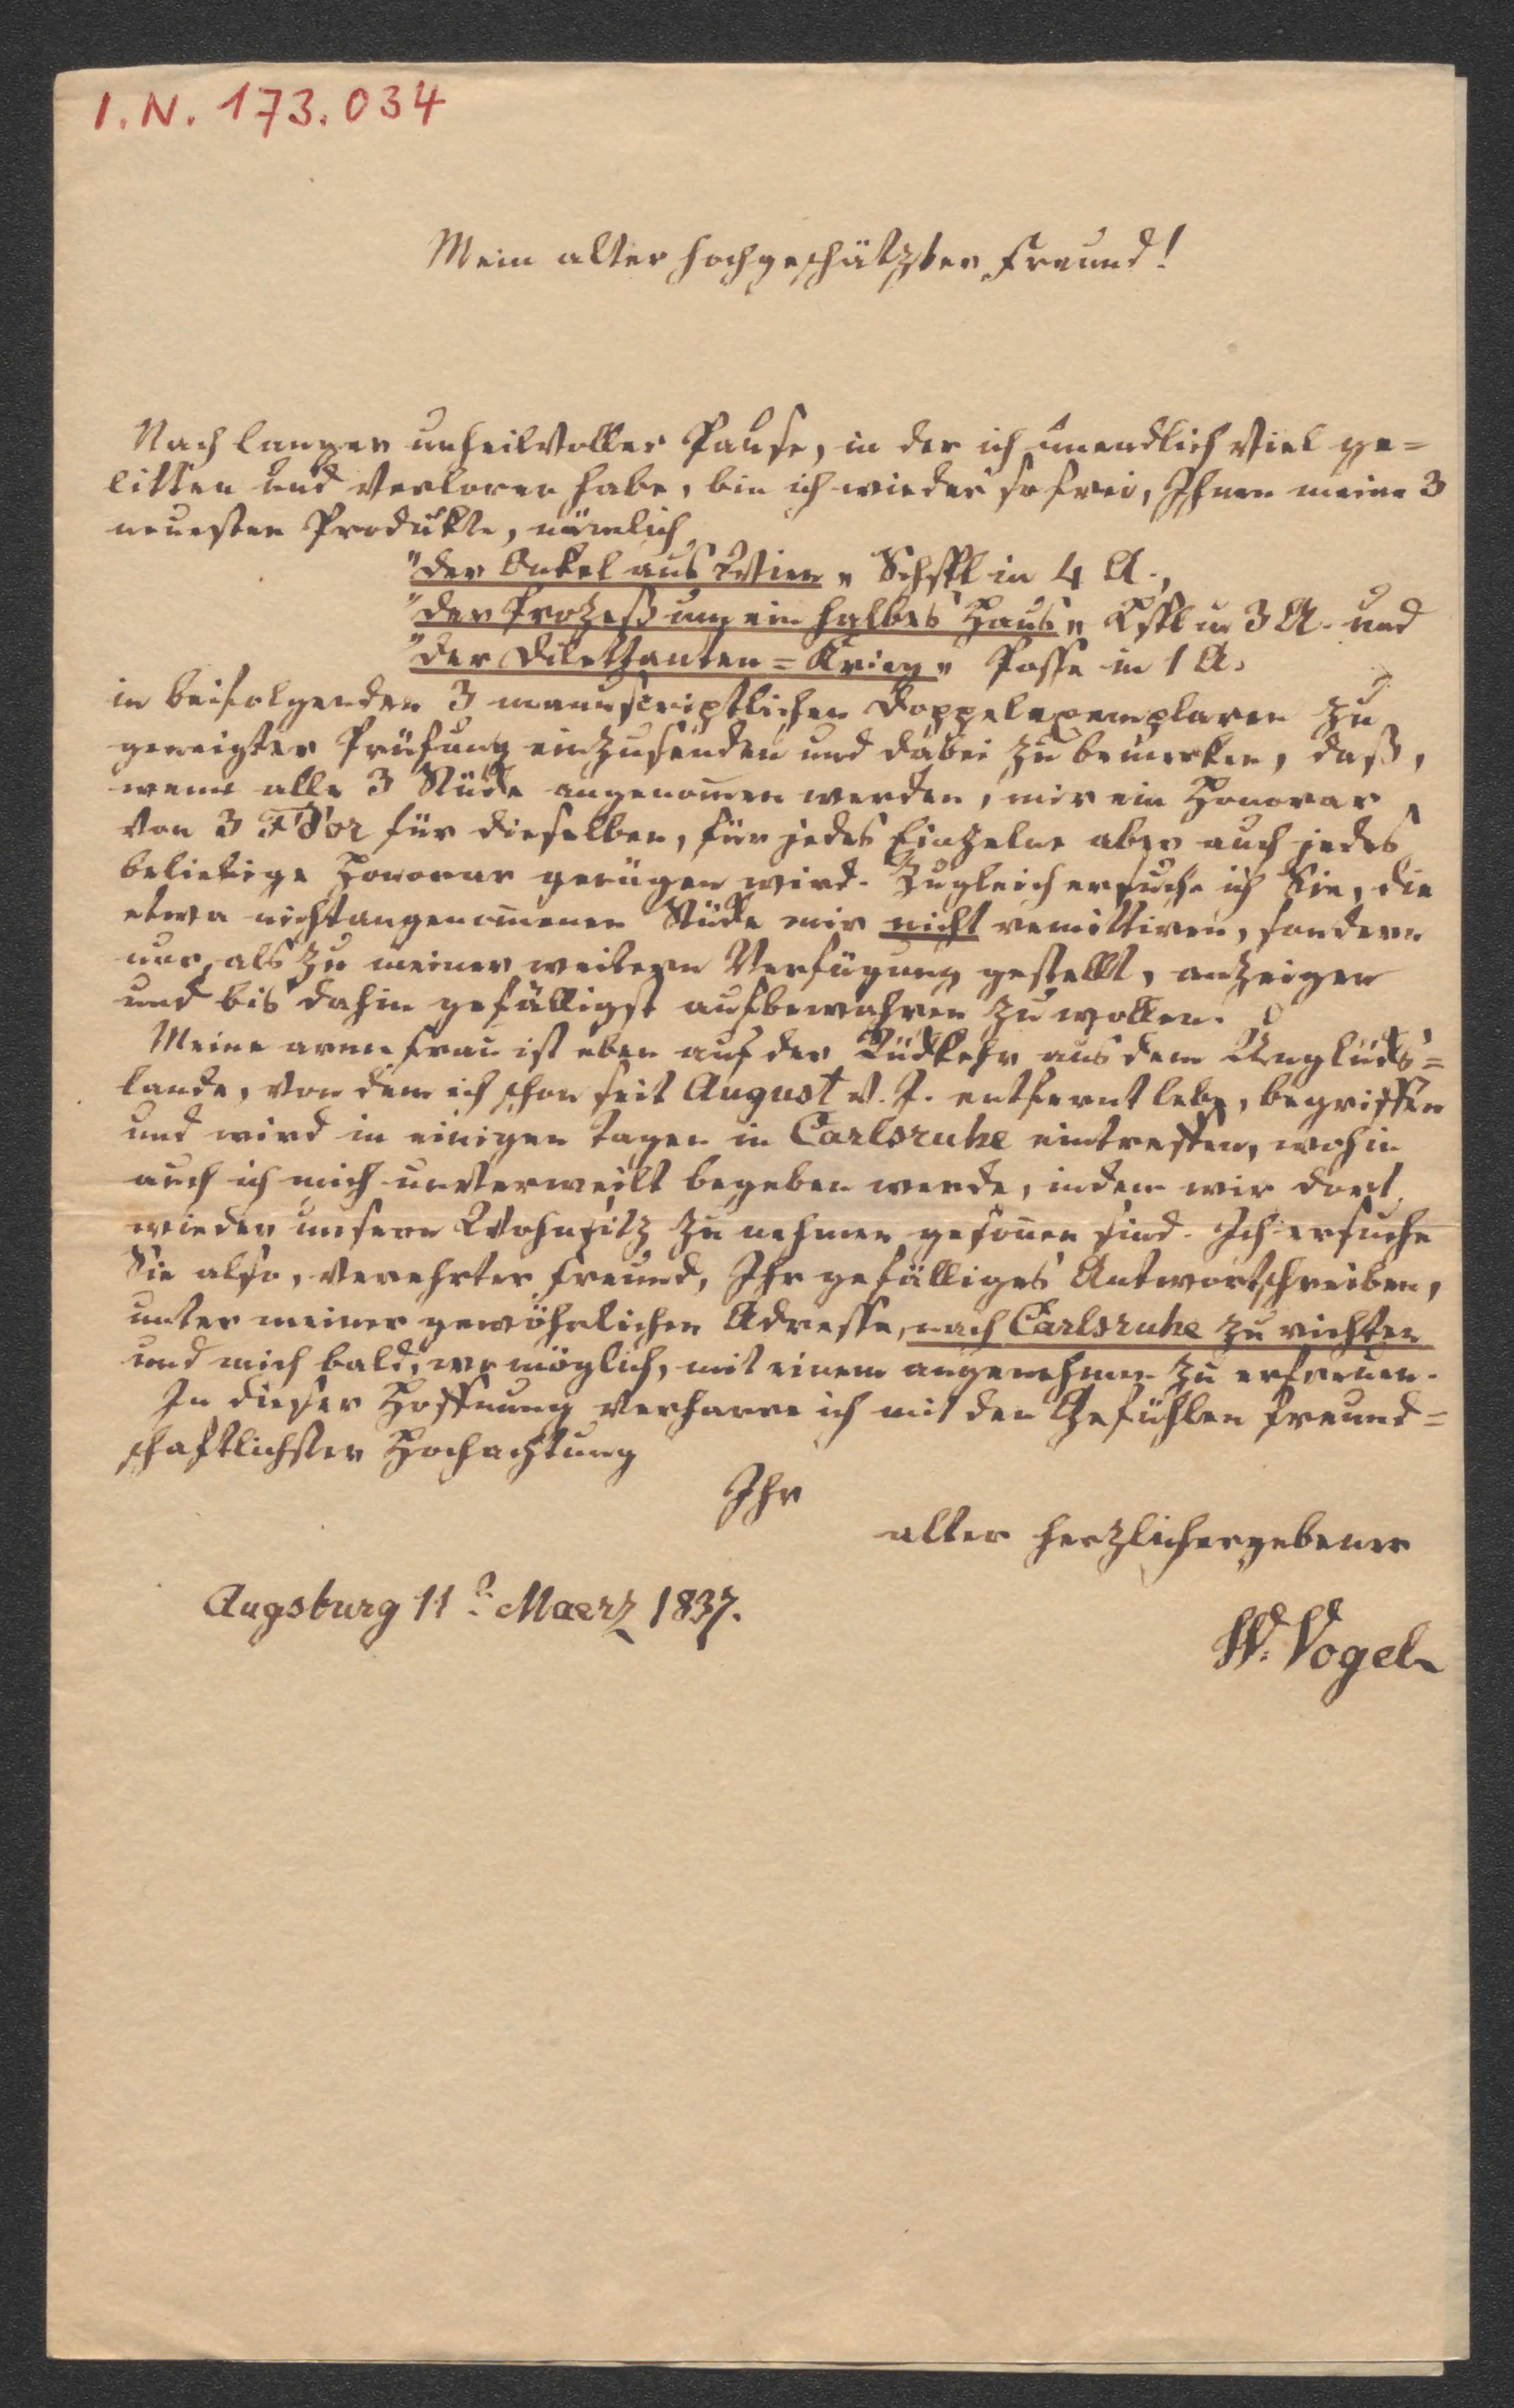 I. N. 173.034
Mein alter hochgeschätzter Freund!
Nach langer unheilvoller Pause, in der ich unendlich Viel ge=
litten und verloren habe, bin ich wieder so frei, Ihnen meine 3
neuesten Produkte, nämlich
"Der Onkel aus Wien" Schspl in 4 A.,
"Der Prozeß um ein halbes Haus" Lspl in 3 A. und
"Der Dilettanten=Krieg" Posse in 1 A.
in beifolgenden 3 manuscriptlichen Doppelexemplaren zu
geneigter Prüfung einzusenden und dabei zu bemerken, daß,
wenn alle 3 Stücke angenom̅en werden, mir ein Honorar
von 3 Fd'or für dieselben, für jedes Einzelne aber auch jedes
beliebige Honorar genügen wird. Zugleich ersuche ich Sie, die
etwa nichtangenom̅enen Stücke mir nicht remittiren, sondern
nur, als zu meiner weitern Verfügung gestellt, anzeigen
und bis dahin gefälligst aufbewahren zu wollen.
Meine arme Frau ist eben auf der Rückkehr aus dem Unglücks=
lande, von dem ich schon seit August v. J. entfernt lebe, begriffen
und wird in einigen Tagen in Carlsruhe eintreffen, wohin
auch ich mich unverweilt begeben werde, indem wir dort
wieder unsern Wohnsitz zu nehmen geson̅en sind. Ich ersuche
Sie also, verehrter Freund, Ihr gefälliges Antwortschreiben,
unter meiner gewöhnlichen Adresse, nach Carlsruhe zu richten
und mich bald, wo möglich, mit einem angenehmen zu erfreuen.
In dieser Hoffnung verharre ich mit den Gefühlen freund=
schaftlichster Hochachtung
Ihr
alter herzlichergebener
Augsburg 11. Maerz 1837.
W. Vogel